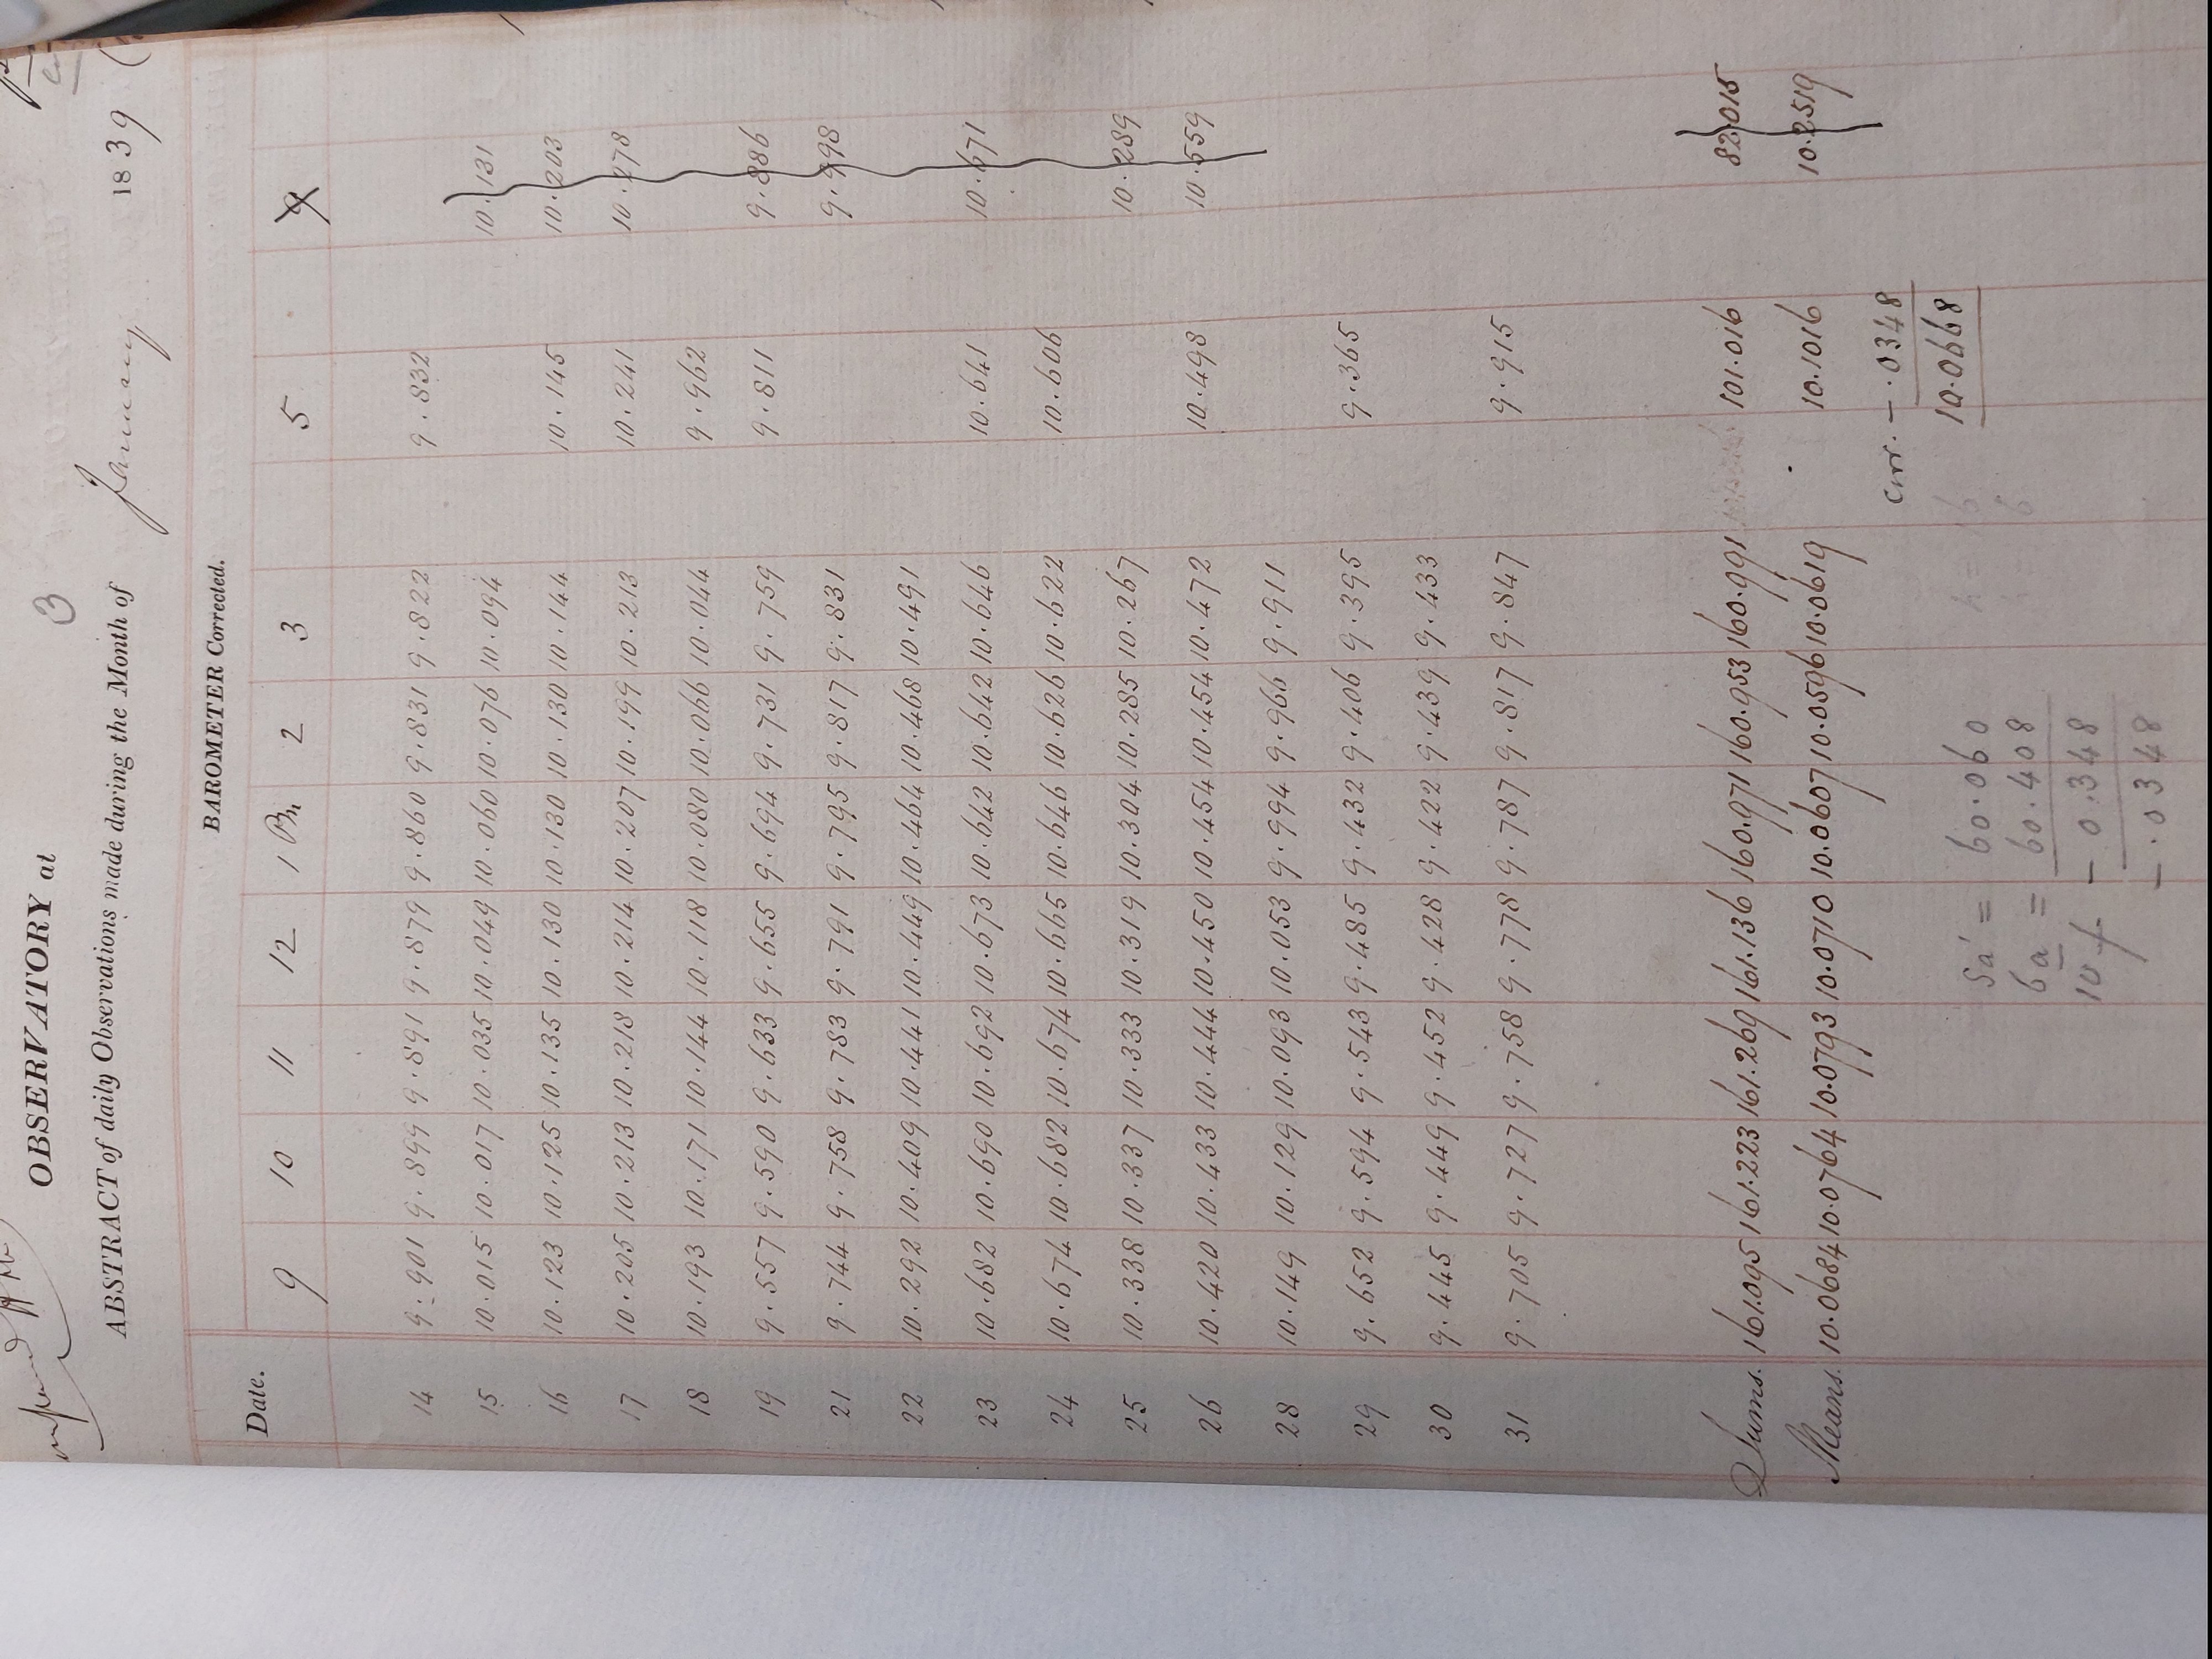 OBSERVATORY at 3
ABSTRACT of daily Observations made during the Month of January 1839
BAROMETER Corrected.
Date.
9 10 11 12 1 Pm 2 3 5 9
14 9.901 9.899 9.891 9.879 9.860 9.831 9.822 9.832
15 10.015 10.017 10.035 10.049 10.060 10.076 10.094 10.131
16 10.123 10.125 10.135 10.130 10.130 10.130 10.144 10.145 10.203
17 10.205 10.213 10.218 10.214 10.207 10.199 10.213 10.241 10.278
18 10.193 10.171 10.144 10.118 10.080 10.066 10.044 9.962
19 9.557 9.590 9.633 9.655 9.694 9.731 9.759 9.811 9.886
21 9.744 9.758 9.783 9.791 9.795 9.817 9.831 9.998
22 10.292 10.409 10.441 10.449 10.464 10.468 10.491
23 10.682 10.690 10.692 10.673 10.642 10.642 10.646 10.641 10.671
24 10.674 10.682 10.674 10.665 10.646 10.626 10.622 10.606
25 10.338 10.337 10.333 10.319 10.304 10.285 10.267 10.289
26 10.420 10.433 10.444 10.450 10.454 10.454 10.472 10.498 10.559
28 10.149 10.129 10.093 10.053 9.994 9.966 9.911
29 9.652 9.594 9.543 9.485 9.432 9.406 9.395 9.365
30 9.445 9.449 9.452 9.428 9.422 9.439 9.433
31 9.705 9.727 9.758 9.778 9.787 9.817 9.847 9.915
Sums. 161.095 161.223 161.269 161.136 160.971 160.953 160.991 101.016 82.015
Means. 10.0684 10.0764 10.0793 10.0710 10.0607 10.0596 10.0619 10.1016 10.2519
corr. - .0348
10.0668
Sa' = 60.060
6a = 60.408
10 f - 0.348
- .0348